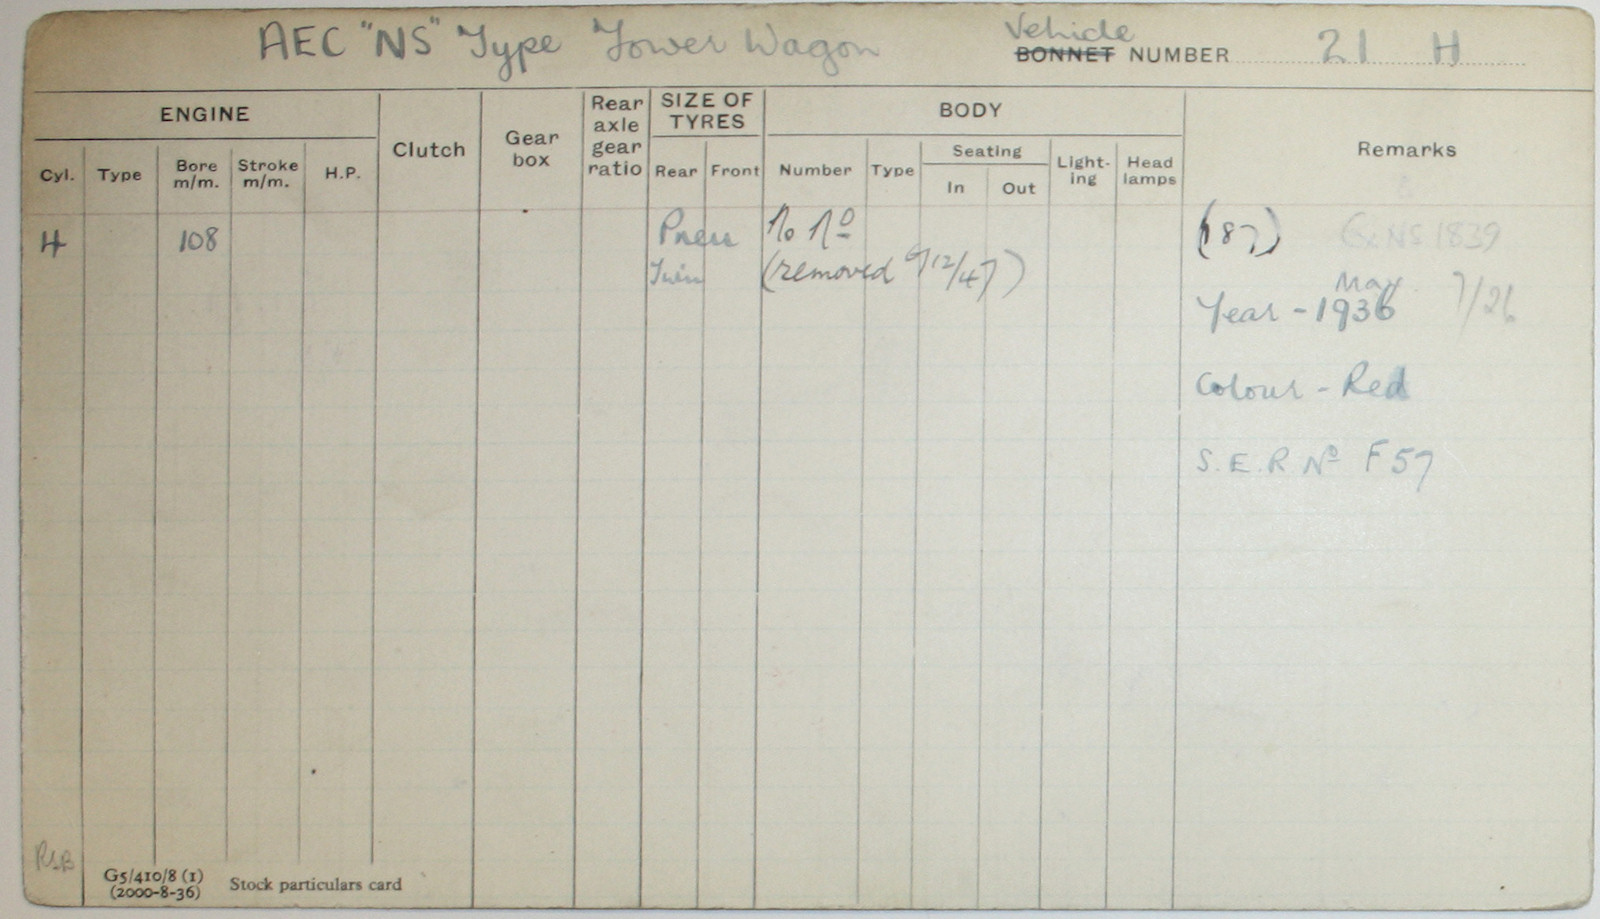 AEC "NS" Type Tower Wagon
Vehicle
BONNET NUMBER 21 H
ENGINE
Clutch
Gear box
Rear axle gear ratio
SIZE OF TYRES
BODY
Remarks
Cyl. Type Bore m/m. Stroke m/m. H.P.
Rear Front
Number Type
Seating
In Out
Light-ing
Head lamps
4 108 Pneu No No
Twin (removed 9/12/47)
(187) Ex NS 1839
May 7/26
Year - 1936
Colour - Red
S.E.R No F57
G5/410/8 (1)
(2000-8-36) Stock particulars card